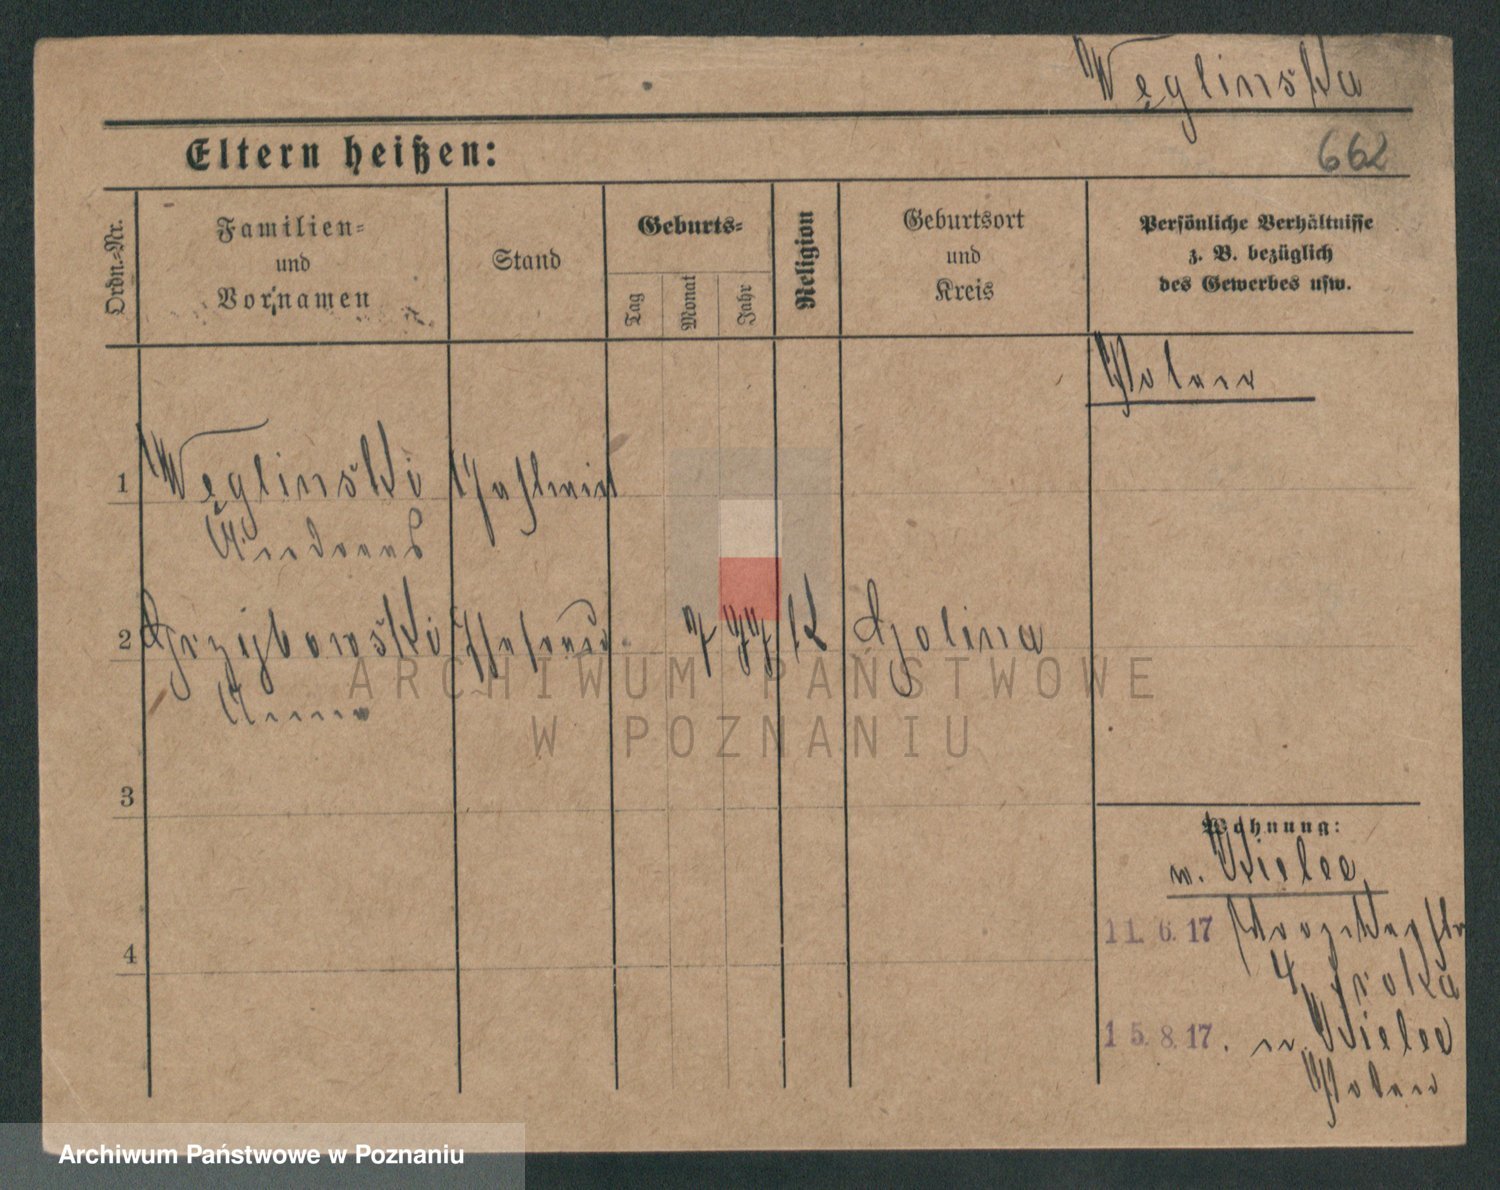 Węglinska
Eltern heißen:
662
Ordn.-Nr.
Familien-
und
Vornamen
Stand
Geburts-
Tag
Monat
Jahr
Religion
Geburtsort
und
Kreis
Persönliche Verhältnisse
z. B. bezüglich
des Gewerbes usw.
Polen
1 Węglinski
Andreas
2 Grzybowski Ehefrau 7 77 K Golina
Anna
ARCHIWUM PAŃSTWOWE
W POZNANIU
3
Wohnung:
n. Kielce
4
11. 6. 17
4
15. 8. 17. n. Kielce
Polen
Archiwum Państwowe w Poznaniu